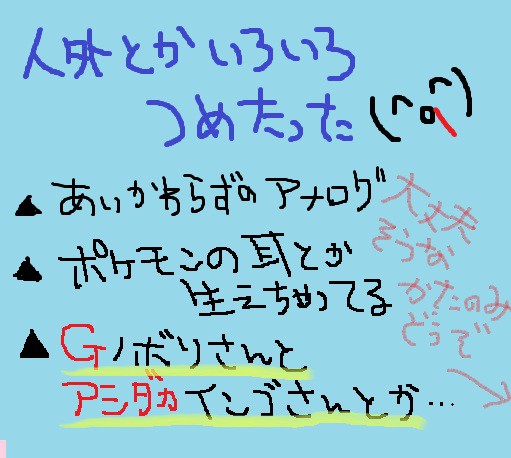 人外とかいろいろ
つめたった(´o`)
▲ あいかわらずのアナログ
▲ ポケモンの耳とか
生えちゃってる
▲ Gノボリさんと
アシダカインゴさんとか…
大丈夫
そうな
かたのみ
どうぞ